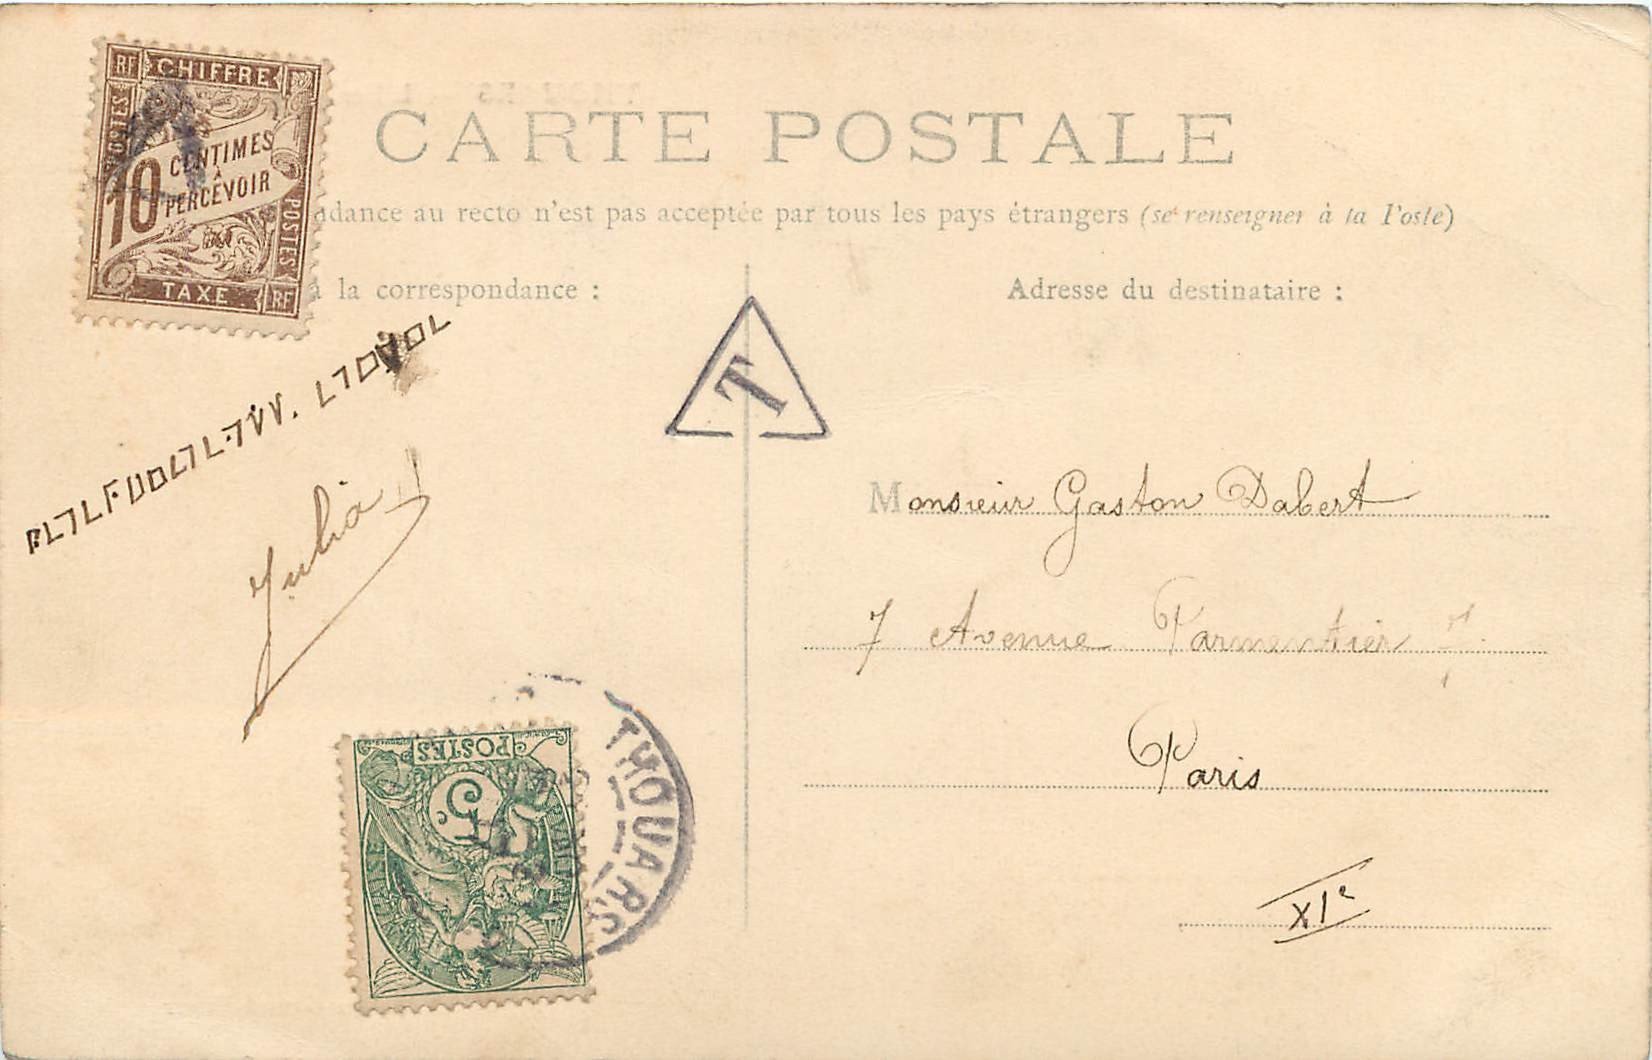 RF CHIFFRE
POSTES
10 CENTIMES
À
PERCEVOIR
POSTES
TAXE RF
CARTE POSTALE
dance au recto n'est pas acceptée par tous les pays étrangers (se renseigner à la Poste)
à la correspondance :
Adresse du destinataire :
T
Monsieur Gaston Dabert
7 Avenue Parmentier
Paris
XIe
Julia
POSTES
5
THOUARS